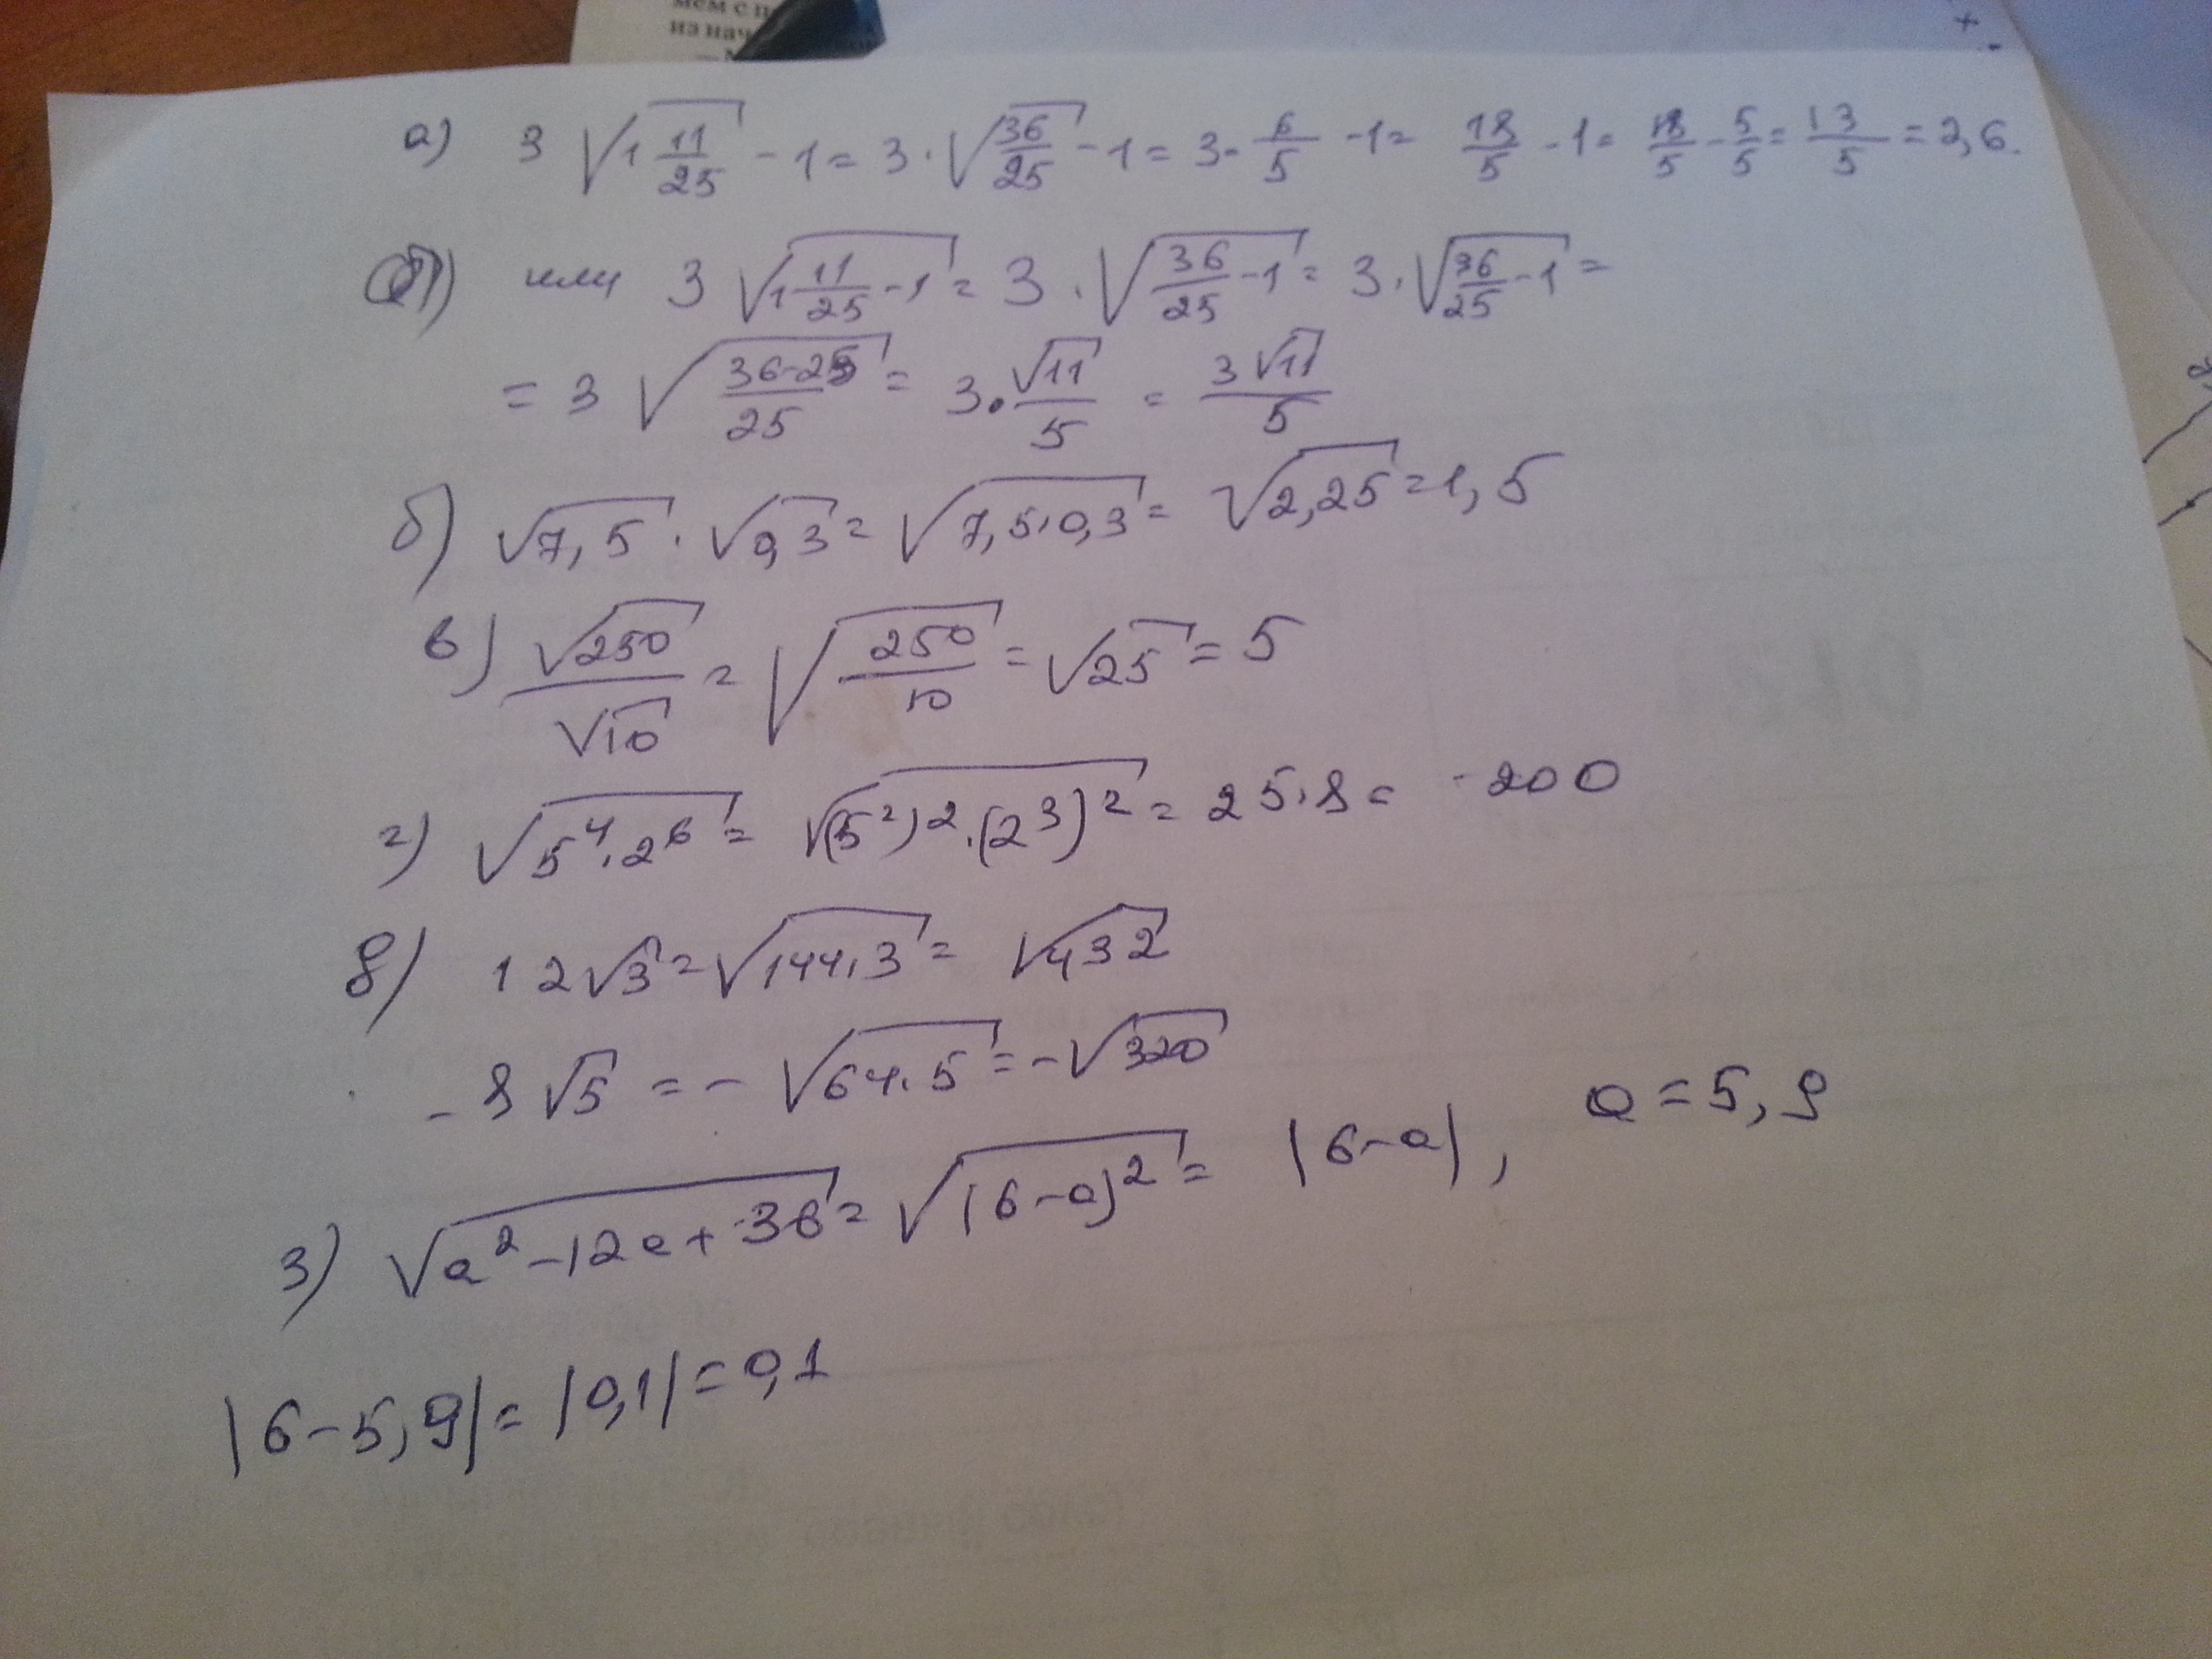 мем с п
из нач
а) 3 √(1 11/25) - 1 = 3 · √(36/25) - 1 = 3 · 6/5 - 1 = 18/5 - 1 = 18/5 - 5/5 = 13/5 = 2,6.
или 3 √(1 11/25 - 1) = 3 · √(36/25 - 1) = 3 · √(36/25 - 1) =
= 3 √((36-25)/25) = 3 · √11/5 = 3√11/5
б) √7,5 · √0,3 = √(7,5·0,3) = √2,25 = 1,5
в) √250/√10 = √(250/10) = √25 = 5
г) √(5⁴·2⁶) = √((5²)²·(2³)²) = 25·8 = 200
8) 12√3 = √(144·3) = √432
- 8√5 = - √(64·5) = - √320
3) √(a² - 12a + 36) = √((6-a)²) = |6-a|, a = 5,9
|6-5,9| = |0,1| = 0,1